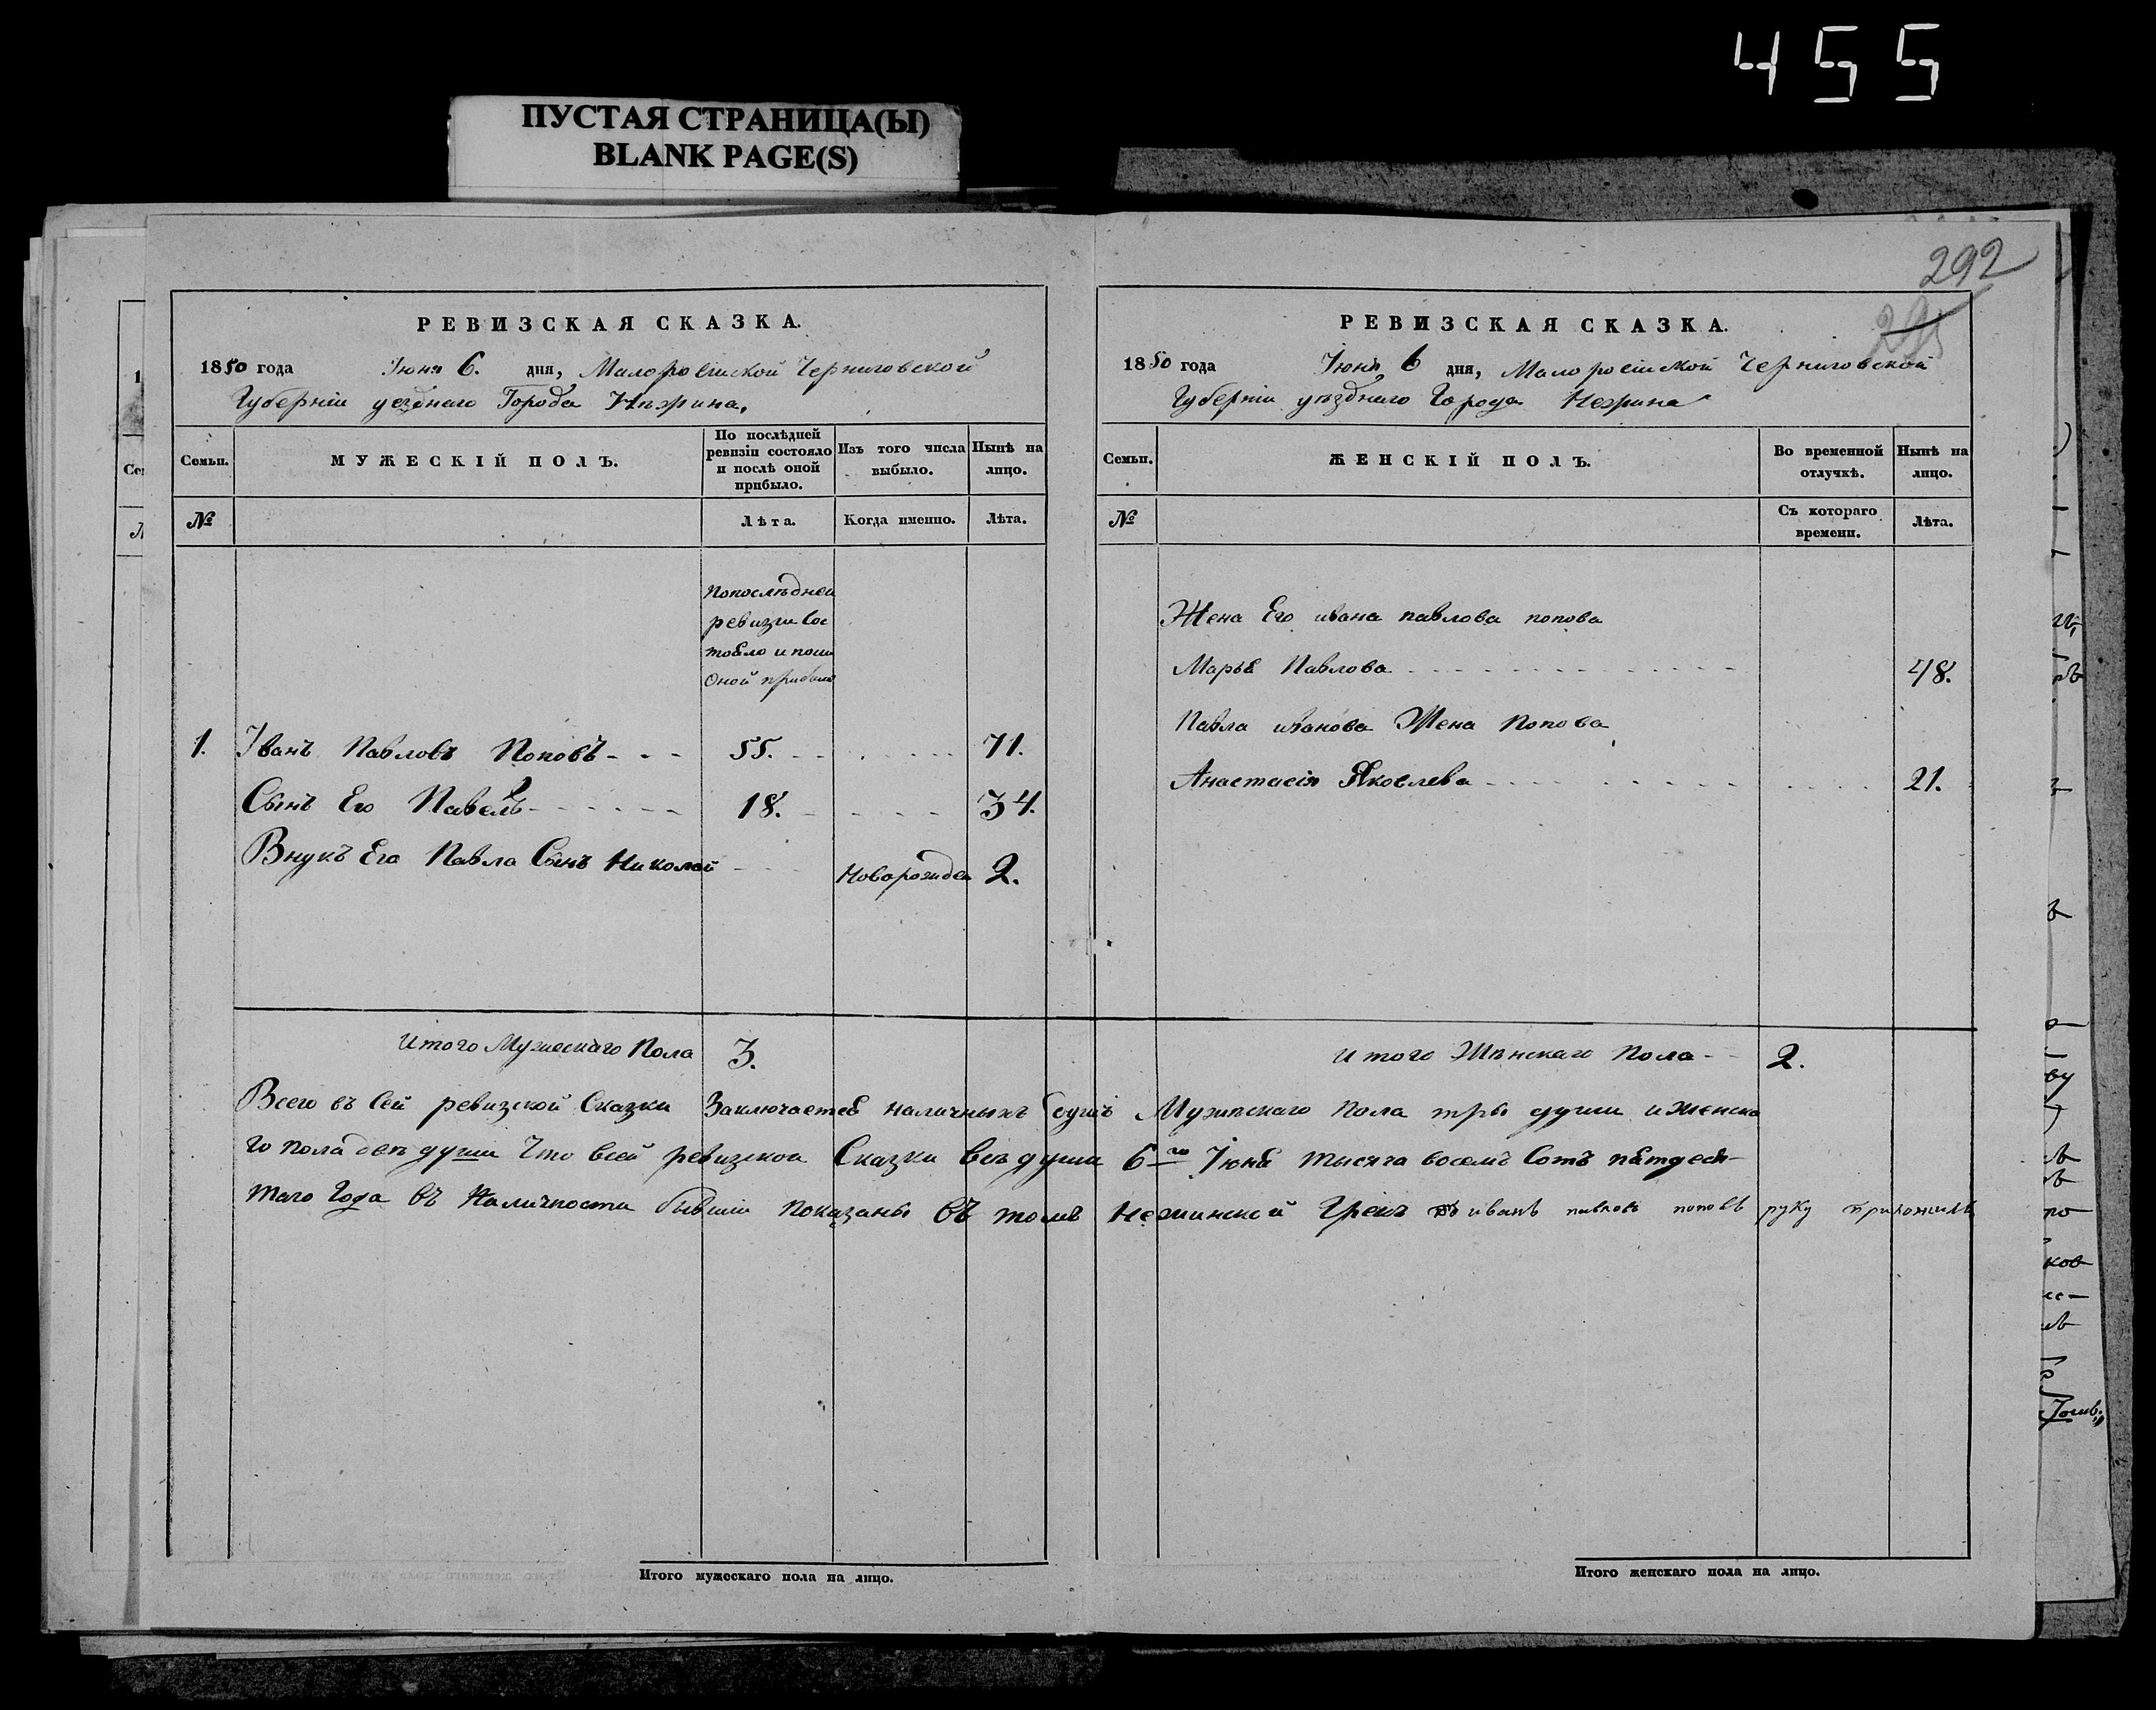 455
ПУСТАЯ СТРАНИЦА(Ы)
BLANK PAGE(S)
292
РЕВИЗСКАЯ СКАЗКА.
1850 года Июня 6. дня, Малоросійской Черниговской
Губерніи уезднаго Города Нѣжина,
Семьи.
МУЖЕСКІЙ ПОЛЪ.
По послѣдней ревизіи состояло и послѣ оной прибыло.
Изъ того числа выбыло.
Нынѣ на лицо.
№
Лѣта.
Когда именно.
Лѣта.
Попослѣдней
ревизіи Сос
тоѣло и посли
Оной прибыло
1. Іванъ Павловъ Поповъ - - - 55. - - 71.
Сынъ Его Павелъ - - - 18. - - 34.
Внукъ Его Павла Сынъ Николай - - Новорожден 2.
Итого Мужескаго Пола 3.
РЕВИЗСКАЯ СКАЗКА.
1850 года Июнѣ 6 дня, Малоросійской Черниговской
Губерніи уѣзднаго Города Нежина
Семьи.
ЖЕНСКІЙ ПОЛЪ.
Во временной отлучкѣ.
Нынѣ на лицо.
№
Съ котораго времени.
Лѣта.
Жена Его ивана павлова попова
Марьѣ Павлова - - - 48.
Павла иванова Жена Попова
Анастасія Яковлева - - - 21.
Итого Жѣнскаго Пола - - 2.
Всего въ Сей ревизской Сказки Заключаетсѣ наличныхъ Душъ Мужпскаго Пола три души и женска
го пола двѣ души Что всей ревизской Сказки всѣ души 6го Іюнѣ тысяча восемъ Сотъ пѣтдеся-
таго Года въ Наличности бывши Показаны въ томъ Нежинской Грекъ иванъ павловъ поповъ руку приложилъ
Итого мужескаго пола на лицо.
Итого женскаго пола на лицо.